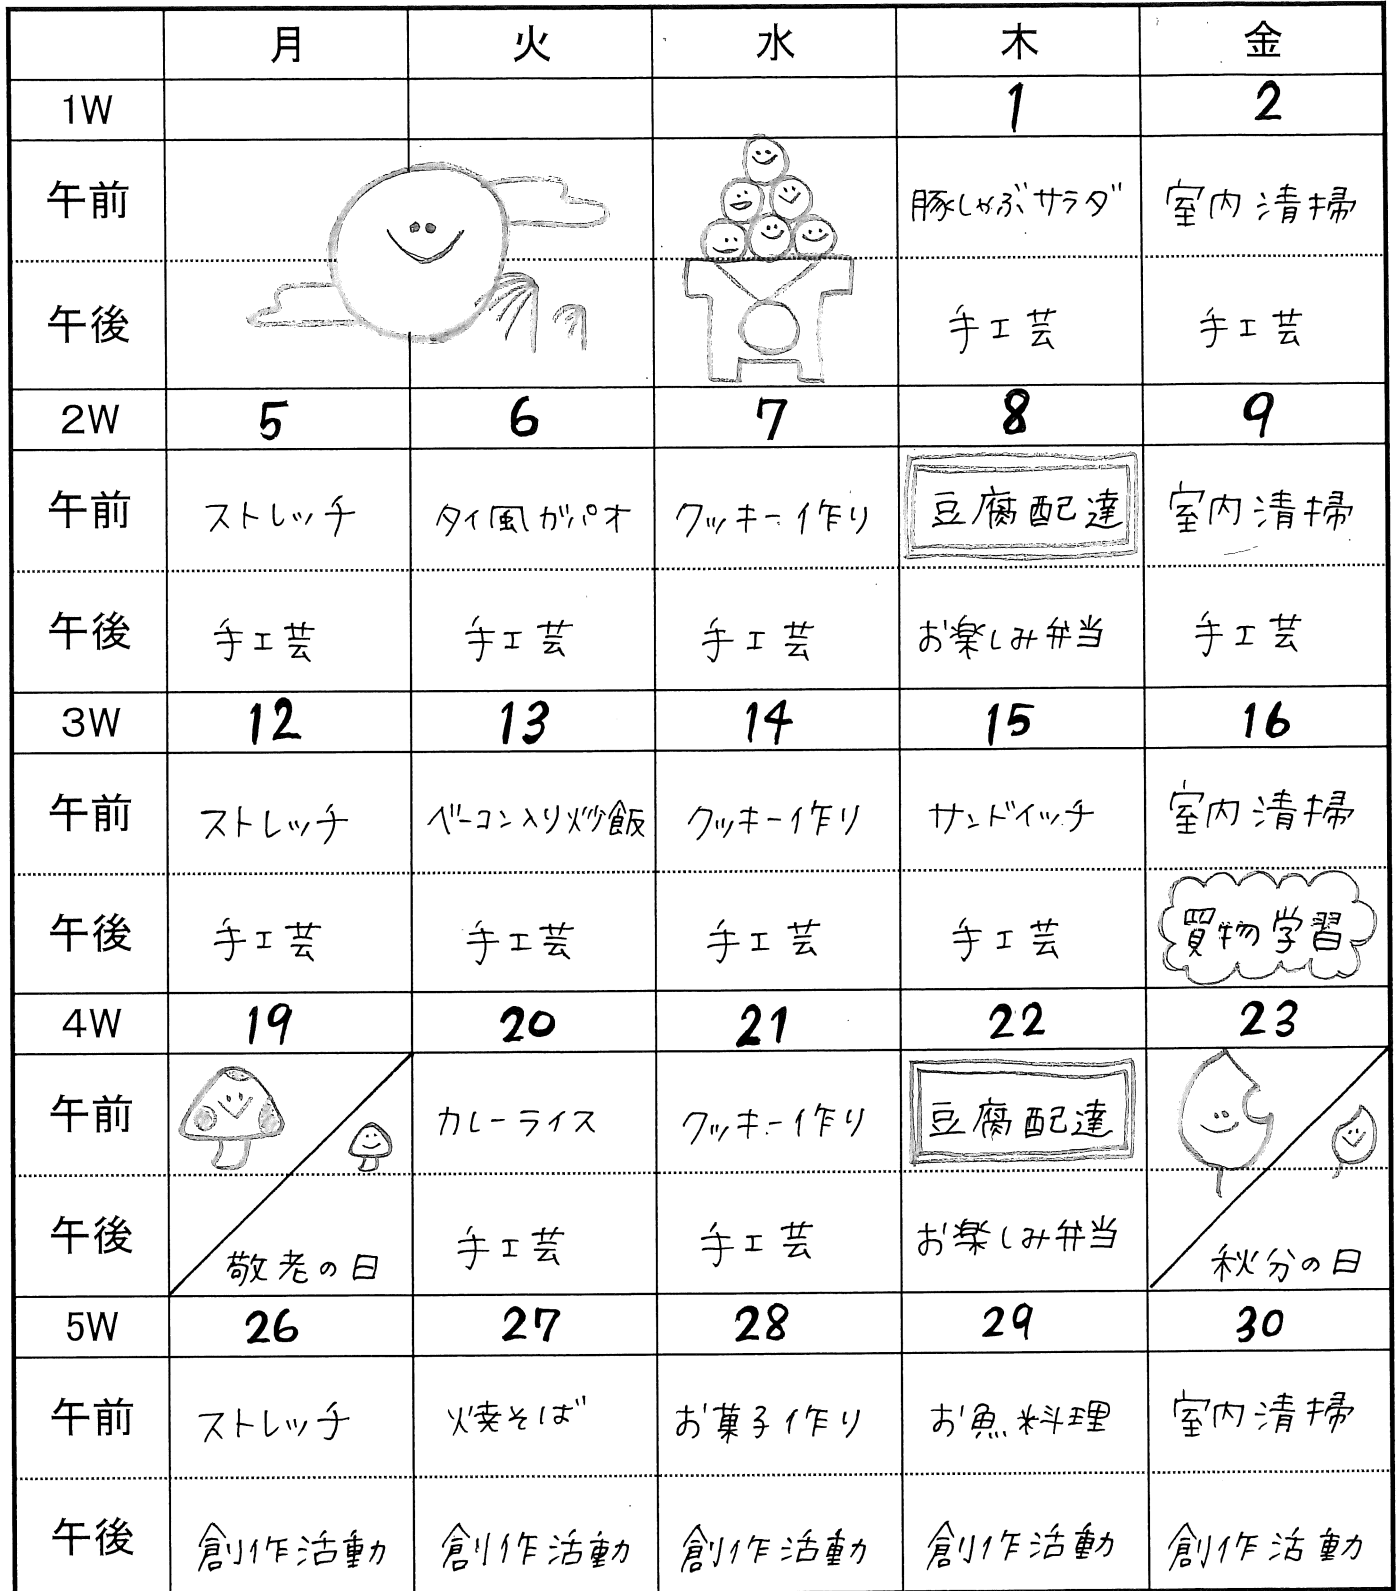 月 火 水 木 金
1W 1 2
午前 豚しゃぶサラダ 室内清掃
午後 手工芸 手工芸
2W 5 6 7 8 9
午前 ストレッチ タイ風ガパオ クッキー作り 豆腐配達 室内清掃
午後 手工芸 手工芸 手工芸 お楽しみ弁当 手工芸
3W 12 13 14 15 16
午前 ストレッチ ベーコン入り炒飯 クッキー作り サンドイッチ 室内清掃
午後 手工芸 手工芸 手工芸 手工芸 買物学習
4W 19 20 21 22 23
午前 カレーライス クッキー作り 豆腐配達
午後 敬老の日 手工芸 手工芸 お楽しみ弁当 秋分の日
5W 26 27 28 29 30
午前 ストレッチ 焼そば お菓子作り お魚料理 室内清掃
午後 創作活動 創作活動 創作活動 創作活動 創作活動